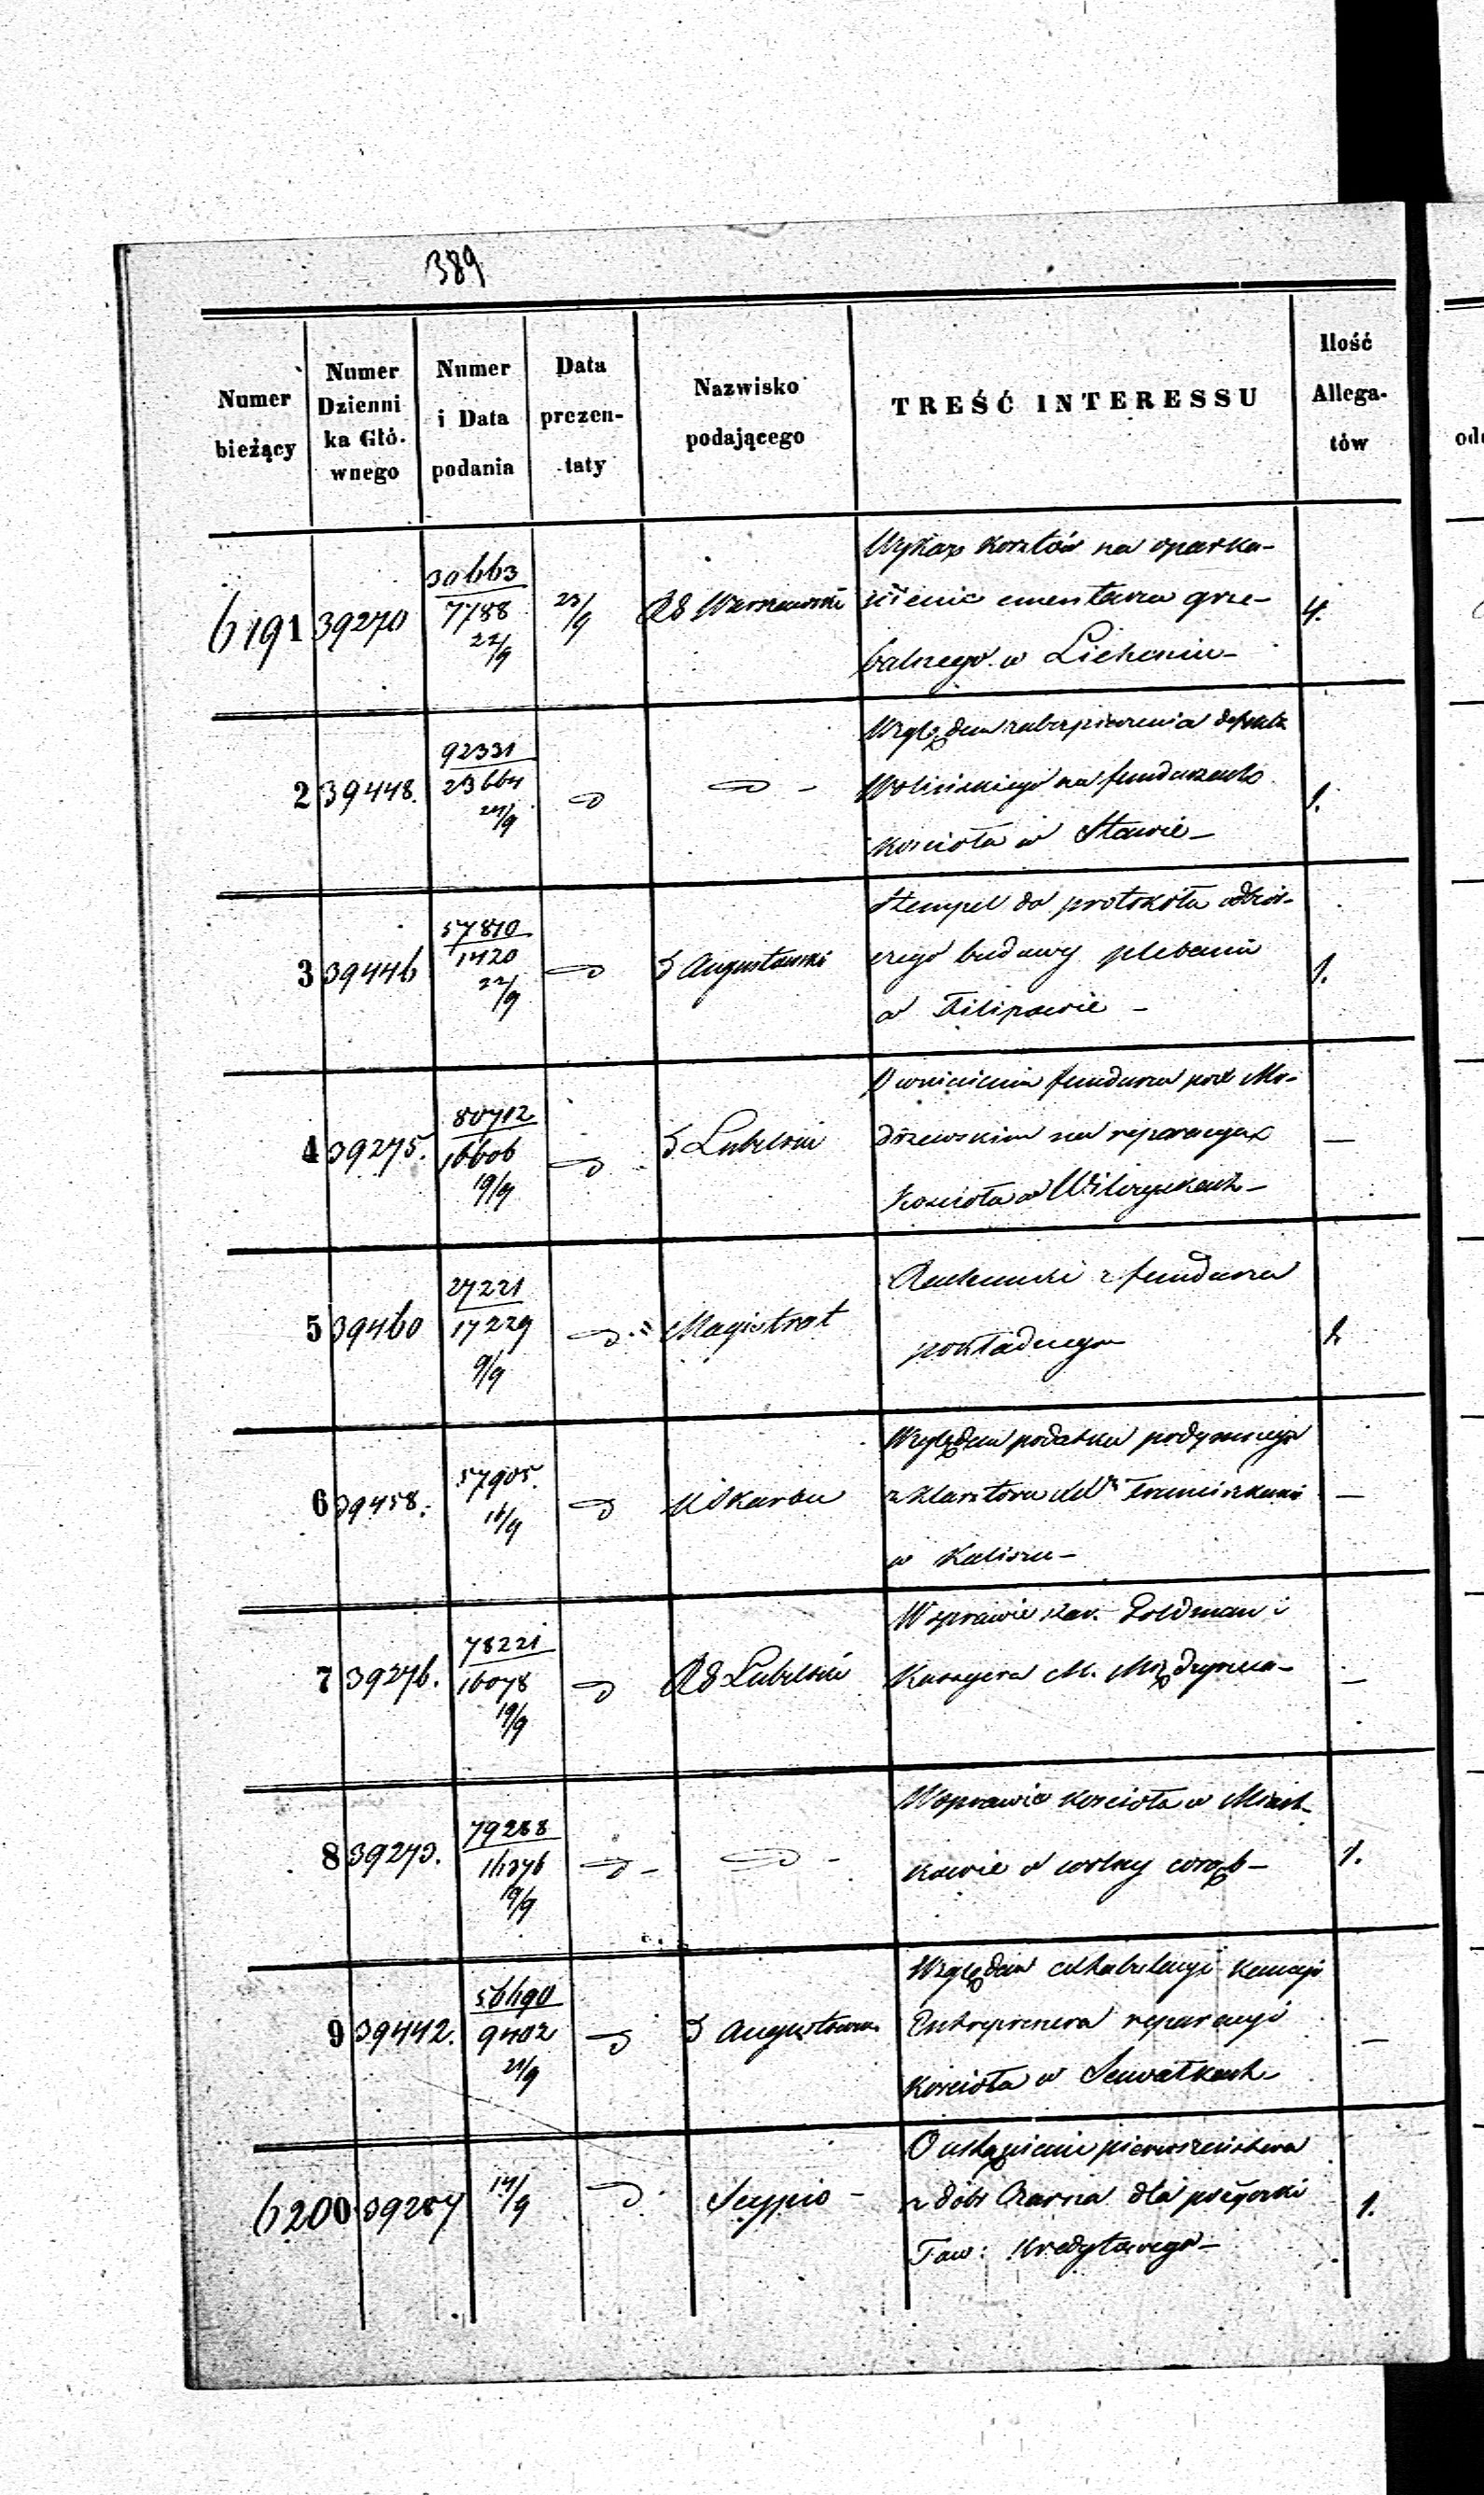 389
Numer bieżący | Numer Dzienni ka Głó. wnego | Numer i Data podania | Data prezen- taty | Nazwisko podającego | TREŚĆ INTERESSU | Ilość Allega- tów
6191 39270 30663 / 7788 22/9 23/9 Warszawski 4.
Wykaz kosztów na oparka-
nienie cmentarza grze-
balnego w Licheniu-
2 39448. 92331 / 23664 21/9 1.
Względem zabezpieczenia
Wolińskiego na funduszach
kościoła w Stawie-
3 39446 57810 / 1420 22/9 Augustowski 1.
Stempel do protokółu odbior-
czego budowy plebanii
w Filipowie -
4 39275. 80712 / 16606 19/9 Lubelski —
funduszu pod Mo-
drzewskim na reparacyą
kościoła w Wilczyskach-
5 39460 27221 / 17229 9/9 Magistrat
Rachunki z funduszu
pokładnego
6 39458. 57905. 16/9 Skarbu —
Względem podatku podymnego
z klasztoru Franciszkanów
w Kaliszu-
7 39276. 78221 / 16078 19/9 Lubelski —
W sprawie Goldman i
Kassyera M. Międzyrzeca-
8 39273. 79288 / 16376 19/9 1.
W sprawie kościoła w
o wolny wrąb-
9 39442. 56690 / 9402 21/9 Augustowski —
Względem kaucyi
Entreprenera reparacyi
kościoła w Suwałkach-
6200 39287 14/9 Scypio - 1.
O ustąpienie pierwszeństwa
z dóbr dla pożyczki
Tow: Kredytowego-